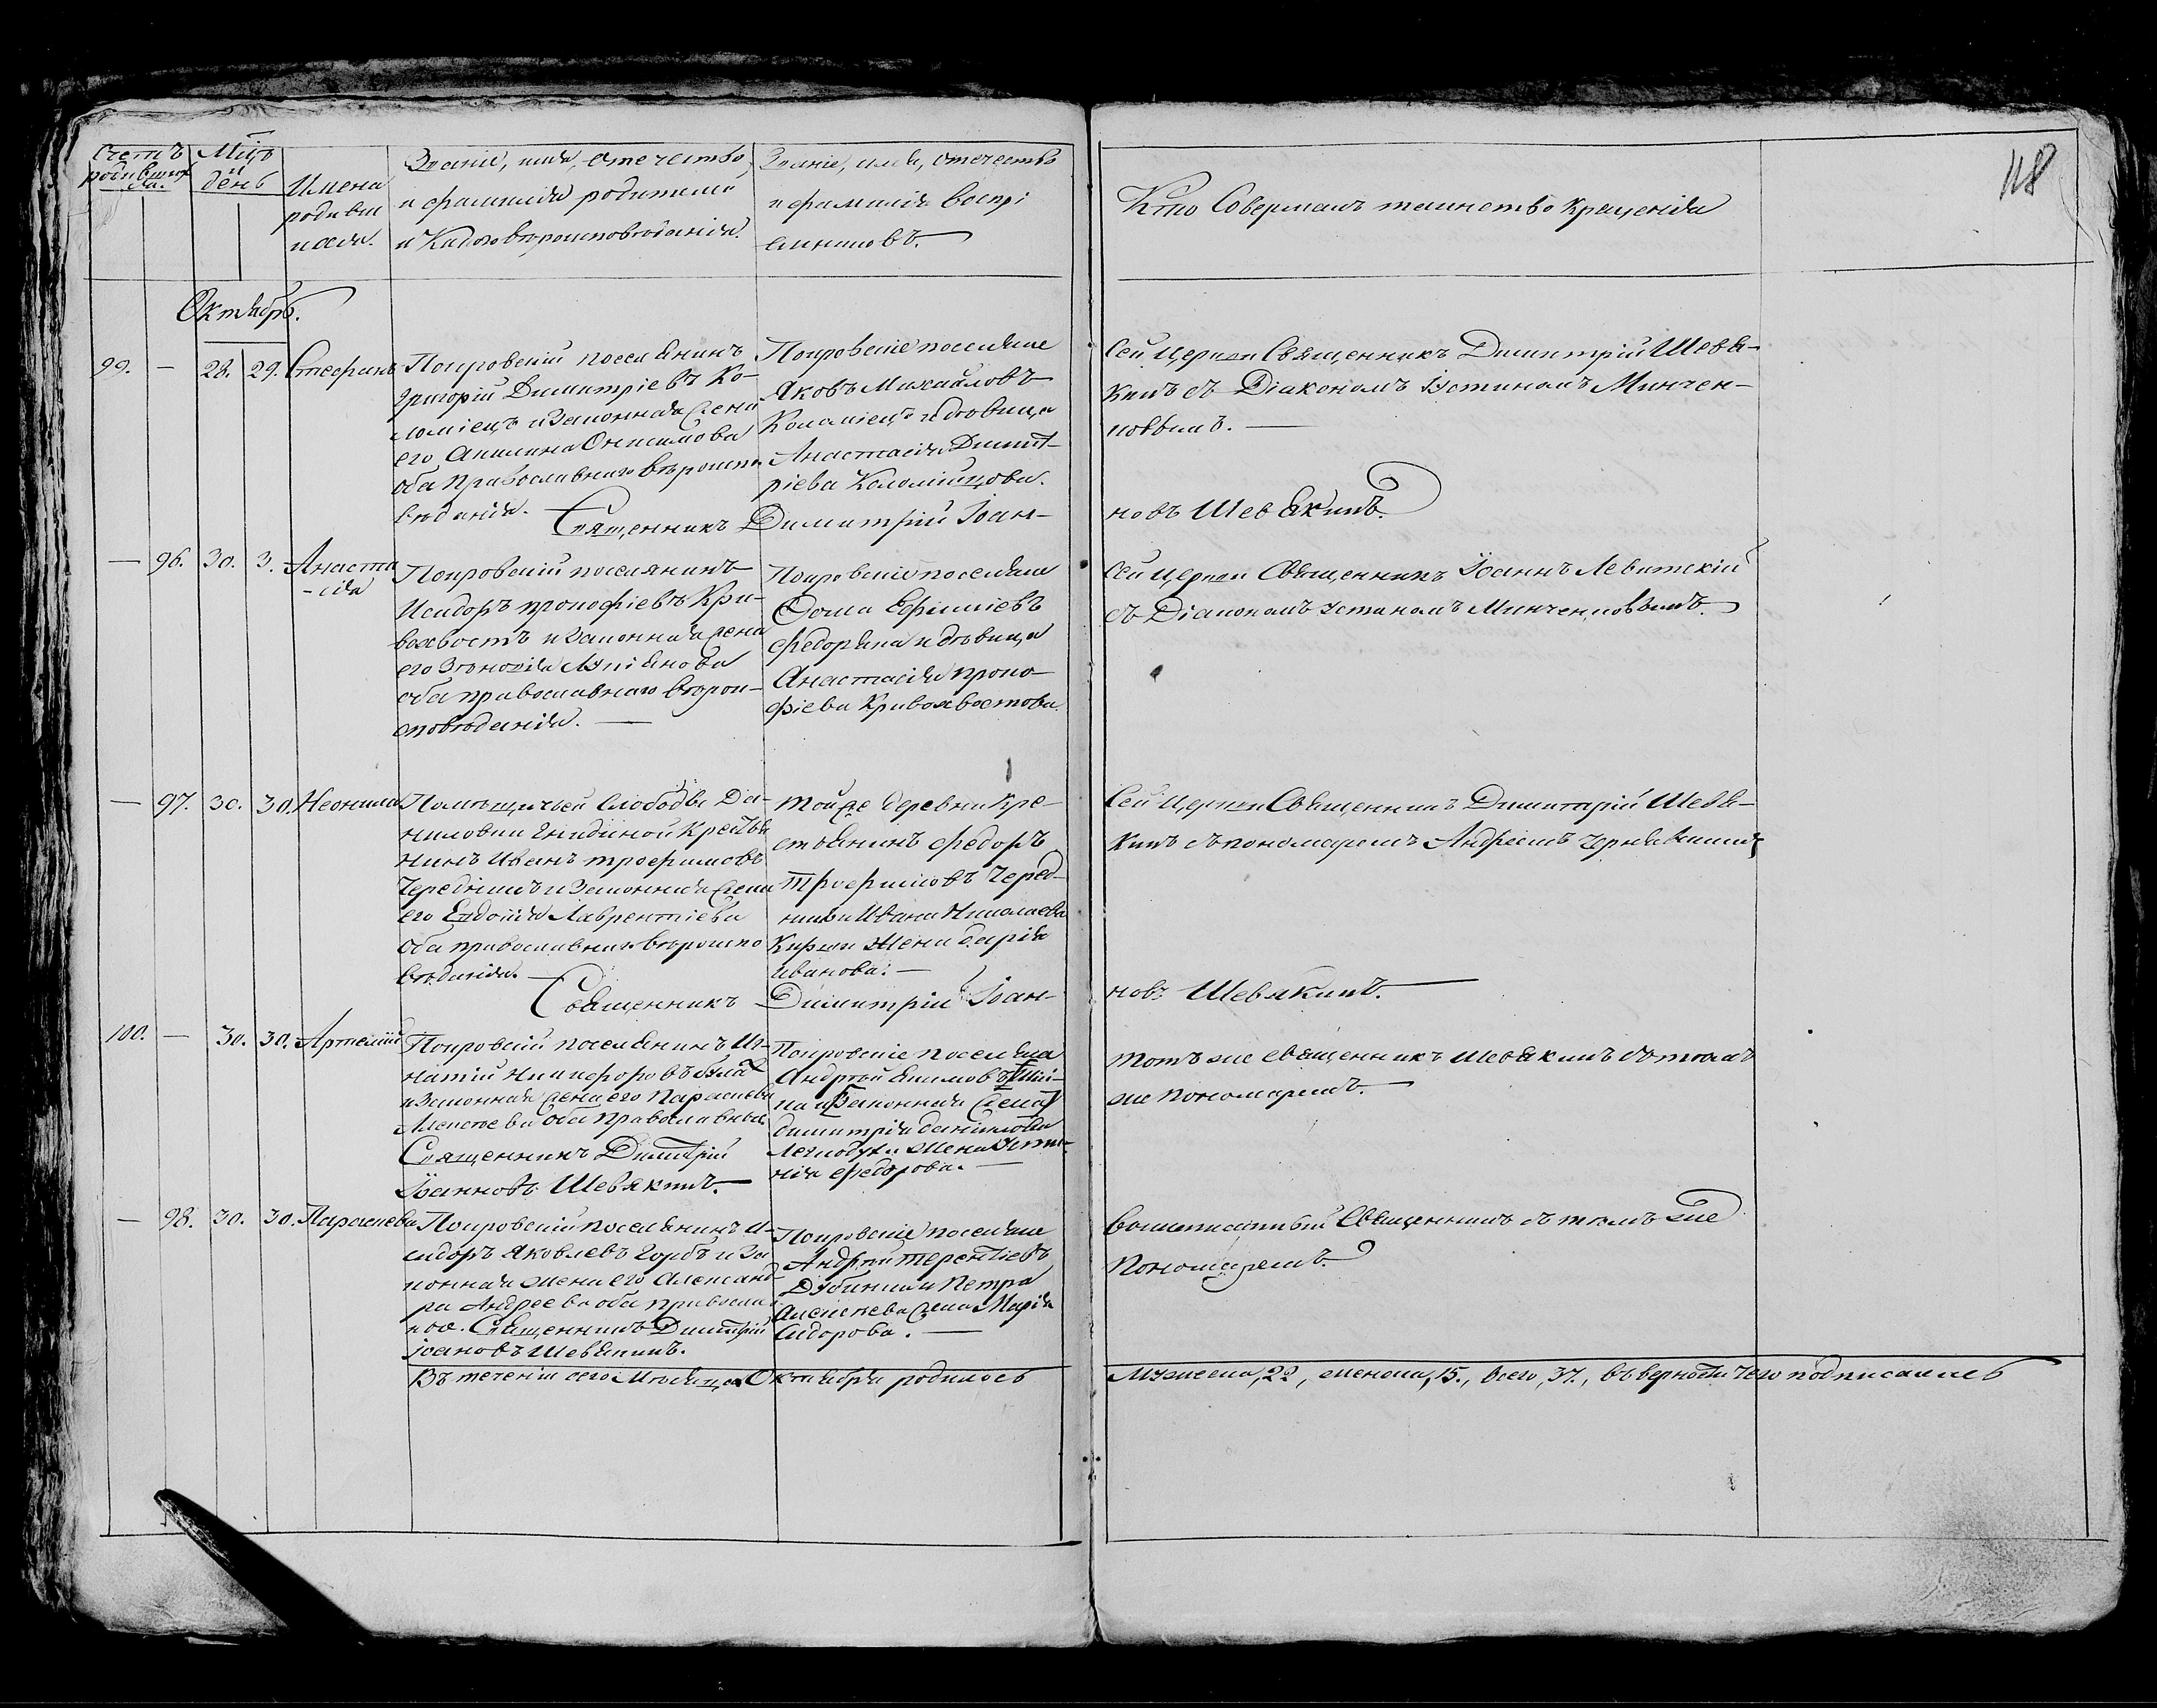 118
Счетъ родившихся.
Мцъ и день
Имена родившихся.
Званіе, имя, отечество,
и фамилія родителей
и Какого вѣроисповѣданія.
Званіе, имя, отечество
и фамилія Воспрі
емниковъ.
Кто Совершалъ таинство крещенія
Октябрь.
99. — 28. 29. Стефанъ
Покровскій поселянинъ
Григорій Димитріевъ Ко-
ломіецъ и Законная жена
его Акилина Онисимова
оба Православнаго вѣроиспо
вѣданія.
Покровскіе поселяне
Яковъ Михайловъ
Коломіецъ и дѣвица
Анастасія Димит-
ріева Коломійцова.
Сей Церкви Священникъ Димитрій Шевя-
кинъ съ Діакономъ Іустиномъ Минчен-
ковымъ.
Священникъ Димитрій Іоан-
новъ Шевякинъ.
— 96. 30. 3. Анаста
-сія
Покровскій поселянинъ
Исидоръ Прокофіевъ Кри-
вохвостъ и Законная жена
его Зѣновія Лукіянова
оба православнаго вѣрои-
сповѣданія.
Покровскіе поселяне
Фома Ефиміевъ
Федоряка и дѣвица
Анастасія Проко-
фіева Кривохвостова.
Сей Церкви Священникъ Іоаннъ Левитскій
съ Діакономъ Устиномъ Минченковымъ.
— 97. 30. 30. Неонила
Помѣщичьей Слободы Да-
ниловки Крестья
нинъ Иванъ Трофимовъ
Чередникъ и Законная жена
его Евдокія Лаврентіева
Оба православнаго вѣроиспо
вѣданія.
Той же деревни Кре-
стьянинъ Федоръ
Трофимовъ Черед-
никъ и Ивана Николаева
жена Дарія
Иванова.
Сей Церкви Священникъ Димитрій Шевя-
кинъ съ пономаремъ Андреемъ Чернявскимъ
Священникъ Димитрій Іоан-
новъ Шевякинъ.
100. — 30. 30. Артемій
Покровскій поселянинъ Иг-
натій Никифоровъ
и Законная жена его Параскева
Алексѣева оба Православные.
Священникъ Димитрій
Іоанновъ Шевякинъ.
Покровскіе поселяне
Андрей Якимовъ
Димитрія Данилова
жена Усти-
нія Федорова.
Тотъ же священникъ Шевякинъ съ тѣмъ
же пономаремъ.
— 98. 30. 30. Параскева
Покровскій поселянинъ И-
сидоръ Яковлевъ Горбъ и За
конная жена его Александ-
ра Андреева оба православ
ное. Священникъ Димитрій
Іоановъ Шевякинъ.
Покровскіе поселяне
Андрей Терентіевъ
Дубина и Петра
Алексеева жена Марія
Сидорова.
Вышеписанный Священникъ съ тѣмъ же
Пономаремъ.
Въ теченіи сего Мѣсяца Октября родилось
Мужеска, 22, женска, 15., всего, 37., въ верности чего подписались